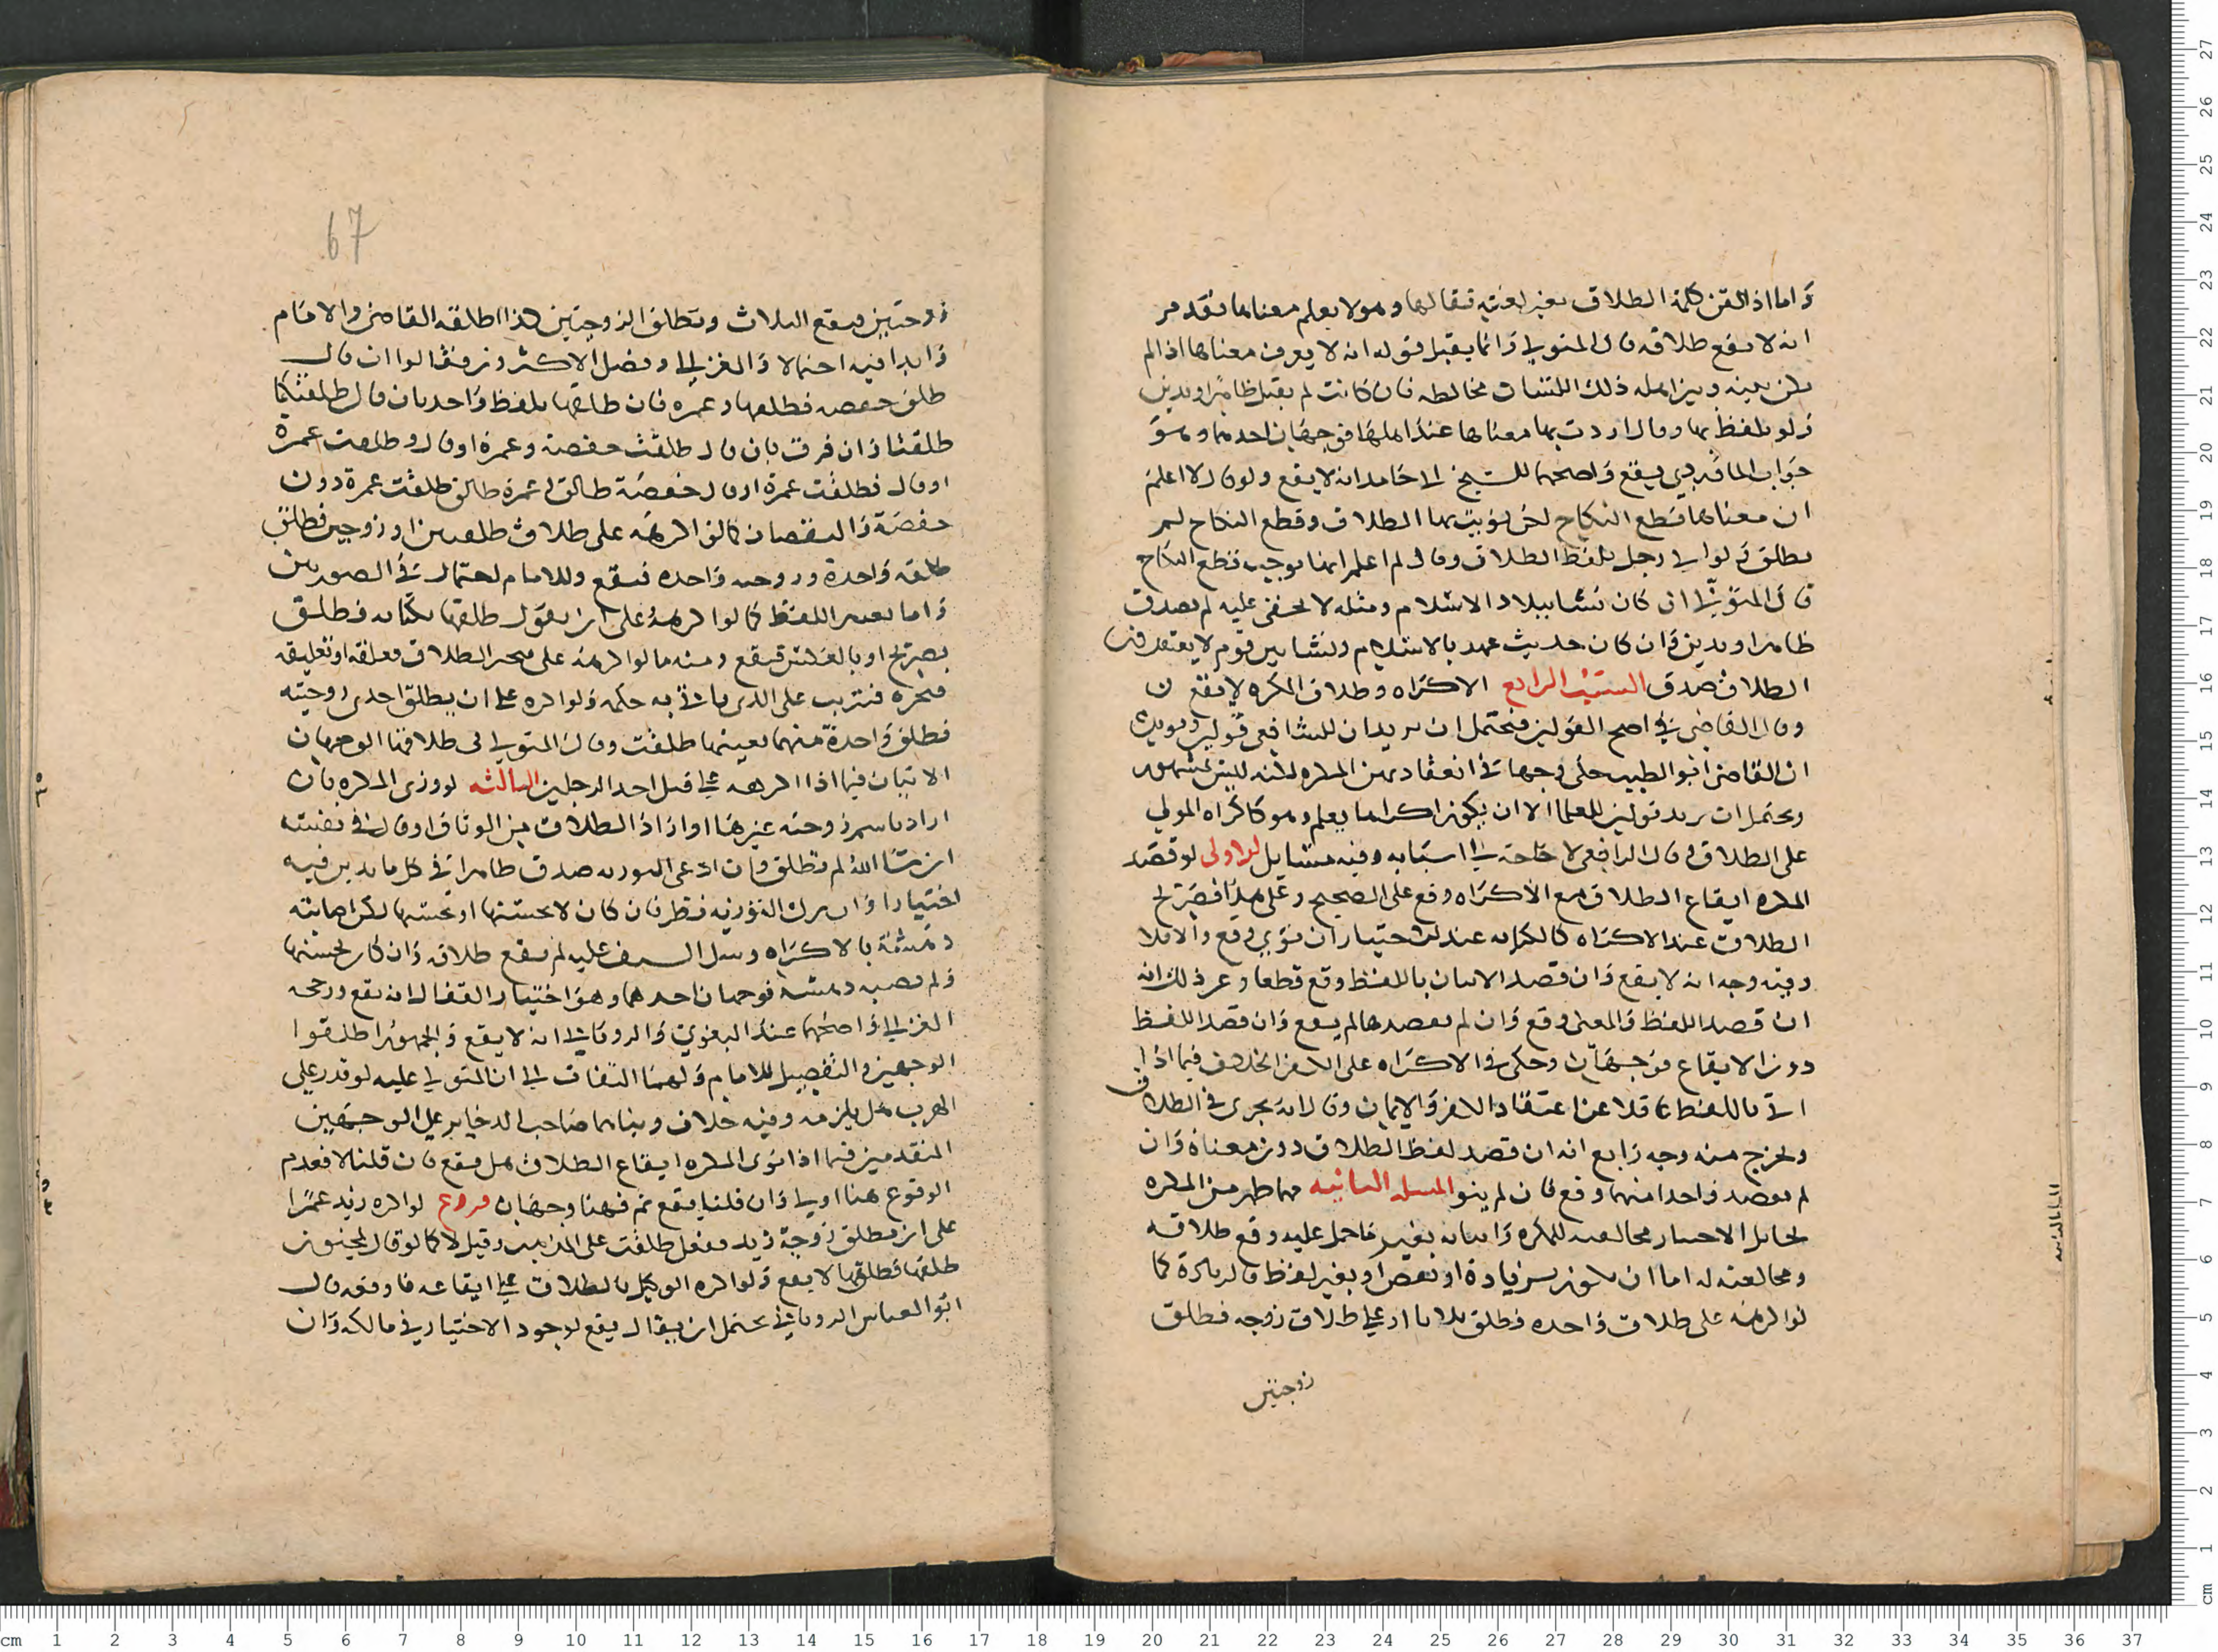 وأما إذا لقن كلمة الطلاق بغير لغته فقالها وهو لا يعلم معناها فتقدم
انه لا يقع طلاقه قال المتولي وانما يقبل قوله انه لا يعرف معناها اذا لم
يكن بينه وبين اهل ذلك اللسان مخالطة فان كانت لم يقبل ظاهرا ويدين
ولو تلفظ بها وقال اردت بها معناها عند اهلها فوجهان احدهما وهو
جواب الماوردي يقع واصحهما للشيخ ابي حامد انه لا يقع ولو قال لا اعلم
ان معناها قطع النكاح لكن نويت بها الطلاق وقطع النكاح لم
تطلق ولو اتى رجل بلفظ الطلاق وقال لم اعلم انها توجب قطع النكاح
قال المتولي ان كان نشا ببلاد الاسلام ومثله لا يخفى عليه لم يصدق
ظاهرا ويدين وان كان حديث عهد بالاسلام ونشا بين قوم لا يعتقدون
الطلاق صدق السبب الرابع الاكراه وطلاق المكره لا يقع
وقال القاضي في اصح القولين فيحتمل ان يريد ان للشافعي قولين ويؤيده
ان القاضي ابو الطيب حكى وجها في انعقاد يمين المكره لكنه ليس بمشهور
ويحتمل ان يريد قولين للعلما الا ان يكون اكراها بعلم وهو كاكراه المولي
على الطلاق قال الرافعي لا حاجة الى استثنائه وفيه مسايل الاولى لو قصد
المكره ايقاع الطلاق مع الاكراه وقع على الصحيح وعلى هذا فصريح
الطلاق عند الاكراه كالكناية عند الاختيار ان نوى وقع والا فلا
وفيه وجه انه لا يقع وان قصد الاتيان باللفظ وقع قطعا وعن ذلك انه
ان قصد اللفظ والمعنى وقع وان لم يقصدهما لم يقع وان قصد اللفظ
دون الايقاع فوجهان وحكى في الاكراه على الكفر الخلاف فيما اذا
اتى باللفظ غافلا عن اعتقاد الكفر والايمان وقال انه يجري في الطلاق
ويخرج منه وجه رابع انه ان قصد لفظ الطلاق دون معناه وان
لم يقصد واحدا منهما وقع فان لم ينو المسلة الثانية مهما ظهر من المكره
مخايل الاختيار بمخالفته للمكره واتيانه بغير ما حمل عليه وقع طلاقه
ومخالفته له اما ان يكون بزيادة او نقص او بغير لفظ فالزيادة كما
لو اكرهه على طلاق واحدة فطلق ثلاثا او على طلاق زوجة فطلق
زوجتين
67
زوجتين فيقع الثلاث وتطلق الزوجتين هذا اطلقه القاضي والامام
وابدا فيه احتمالا والغزالي وفصل الاكثرون فقالوا ان قال
طلق حفصة فطلقها وعمرة فان طلقها بلفظ واحد بان قال طلقتكما
طلقتا وان فرق بان قال طلقت حفصة وعمرة او قال وطلقت عمرة
او قال فطلقت عمرة او قال حفصة طالق وعمرة طالق طلقت عمرة دون
حفصة والنقصان كما لو اكرهه على طلاق طلقتين او زوجتين فطلق
طلقة واحدة وزوجة واحدة فيقع وللامام احتمال في الصورتين
واما بغير اللفظ كما لو اكرهه على ان يقول طلقتها بكناية فطلق
بصريح او بالعكس فيقع ومنه ما لو اكرهه على تنجيز الطلاق فعلقه او تعليقه
فنجزه فترتب على الذي ياتي به حكمه ولو اكره على ان يطلق احدى زوجتيه
فطلق واحدة منهما بعينها طلقت وقال المتولي في طلاقها الوجهان
الاتيان فيما اذا اكرهه على قتل احد الرجلين الثالثة لو ورى المكره بان
اراد باسم زوجته غيرها او اراد الطلاق من الوثاق او قال في نفسه
ان شا الله لم تطلق فان ادعى التورية صدق ظاهرا في كل ما يدين فيه
اختيارا وان ترك التورية نظر فان كان لا يحسنها او يحسنها لكن اصابته
دهشة بالاكراه وسل السيف عليه لم يقع طلاقه وان كان يحسنها
ولم تصبه دهشة فوجهان احدهما وهو اختيار القفال انه يقع ورجحه
الغزالي واصحهما عند البغوي والروياني انه لا يقع والجمهور اطلقوا
الوجهين والتفصيل للامام ولهما التفات الى ان المتولي عليه لو قدر على
الهرب هل يلزمه وفيه خلاف وبناهما صاحب الذخاير على الوجهين
المتقدمين فيما اذا نوى المكره ايقاع الطلاق هل يقع فان قلنا لا فعدم
الوقوع هنا اولى وان قلنا يقع ثم فهنا وجهان فروع لو اكره زيد عمرا
على ان يطلق زوجة زيد ففعل طلقت على المذهب وقيل لا كما لو قال لمجنون
طلقها فطلقها لا يقع ولو اكره الوكيل بالطلاق على ايقاعه فاوقعه قال
ابو العباس الروياني يحتمل ان يقال يقع لوجود الاختيار في مالكه وان